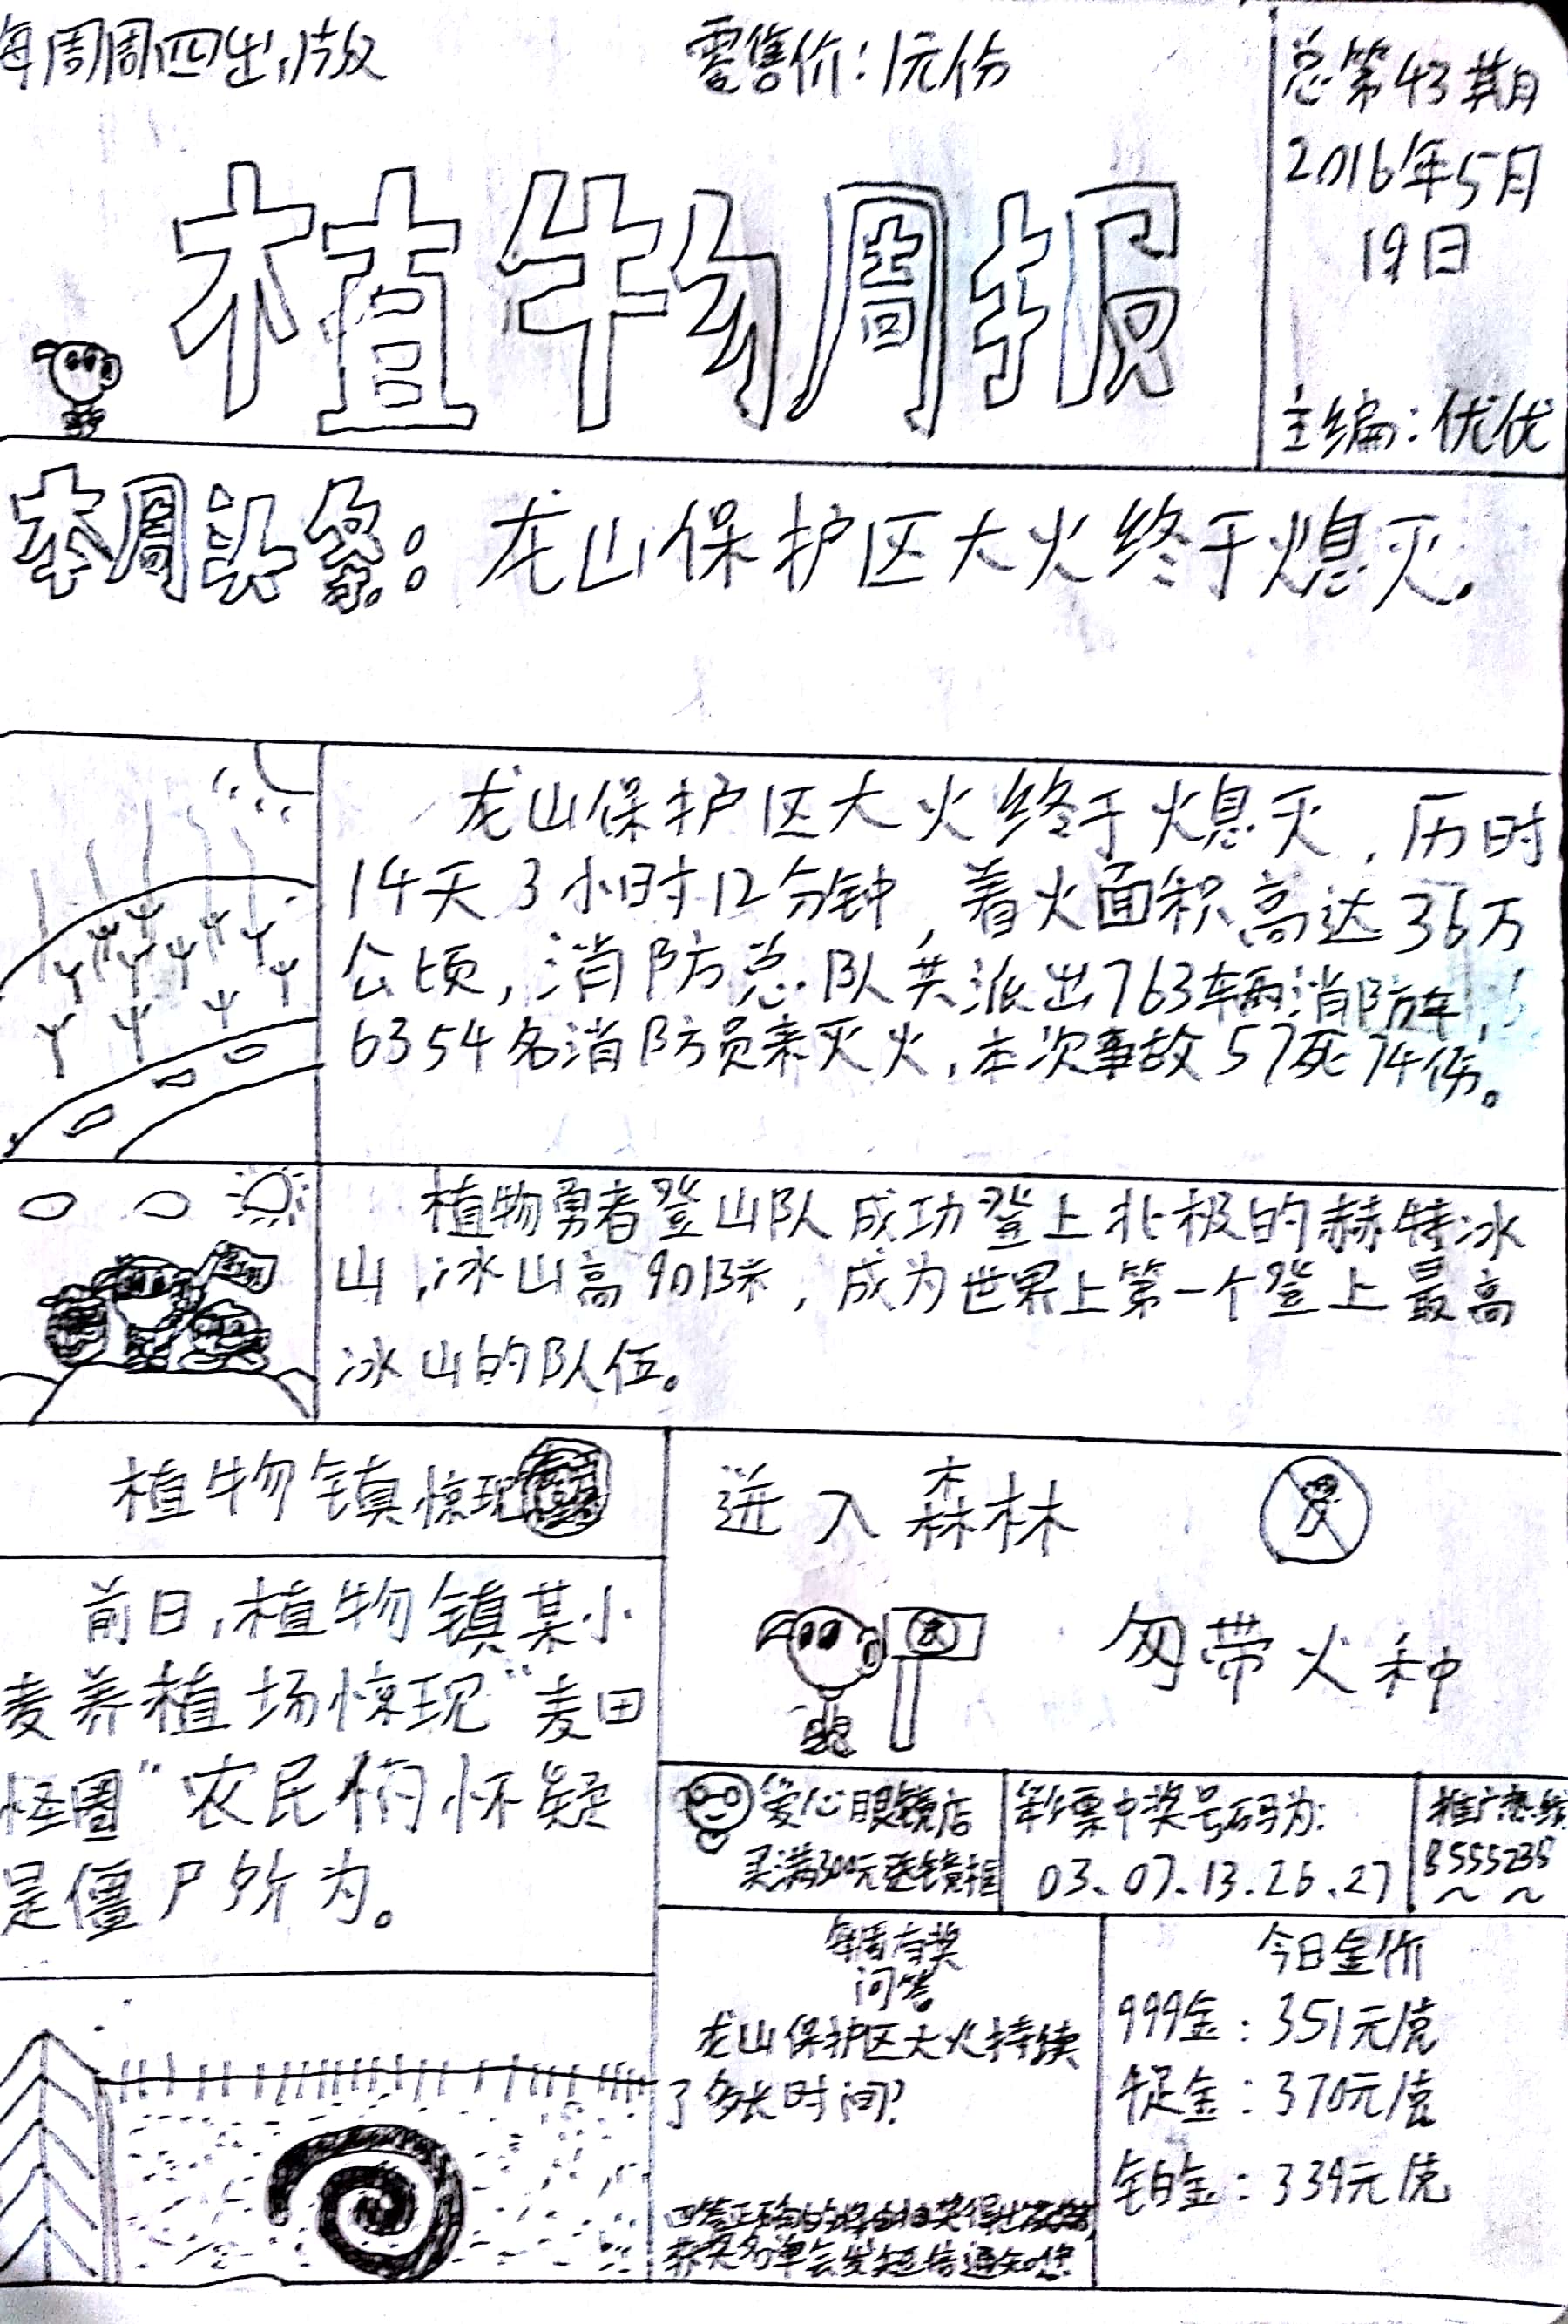 每周周四出版
零售价：1元/份
总第43期
2016年5月
19日
主编：优优
植物周报
本周头条：龙山保护区大火终于熄灭.
龙山保护区大火终于熄灭，历时
14天3小时12分钟，着火面积高达36万
公顷，消防总队共派出763辆消防车，
6354名消防员来灭火，本次事故57死74伤。
植物勇者登山队成功登上北极的赫特冰
山，冰山高9013米，成为世界上第一个登上最高
冰山的队伍。
植物镇惊现
前日，植物镇某小
麦养植场惊现“麦田
怪圈”农民们怀疑
是僵尸所为。
进入森林
勿带火种
爱心眼镜店
买满300元送镜框
彩票中奖号码为：
03、07、13、26、27
推广热线
8555238
～ ～
每周有奖
问答。
龙山保护区大火持续
了多长时间？
获奖名单会发短信通知您
今日金价
999金：351元/克
千足金：370元/克
铂金：339元/克